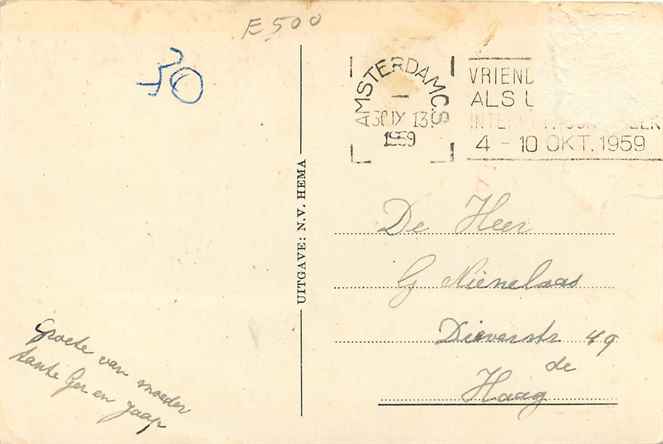 E 500
30
AMSTERDAM C.S.
30 IX 13
1959
VRIEND
ALS U
INTER
4 - 10 OKT. 1959
UITGAVE: N.V. HEMA
De Heer
G Nienelaas
Dieverstr 49
de
Haag
Groete van moeder
tante Ger en Jaap